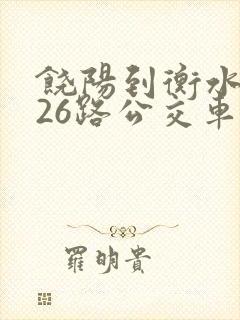 饶陽到衡水
26路公交車
羅明貴